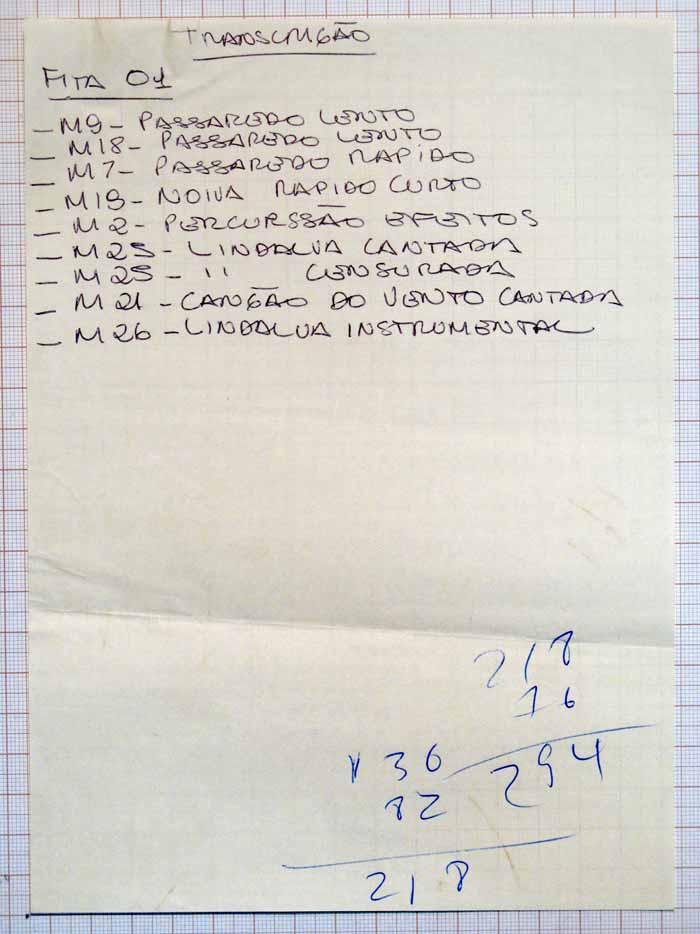 TRANSCRIÇÃO
FITA 01
– M9 – PASSAREDO LENTO
– M18 – PASSAREDO LENTO
– M7 – PASSAREDO RAPIDO
– M19 – NOIVA RAPIDO CURTO
– M2 – PERCURSSÃO EFEITOS
– M25 – LINDALVA CANTADA
– M25 – '' CENSURADA
– M21 – CANÇÃO DO VENTO CANTADA
– M26 – LINDALVA INSTRUMENTAL
218
76
294
136
82
218